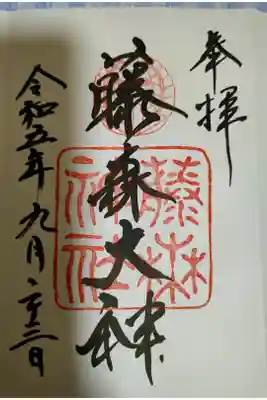 奉拝
藤森大神
令和五年九月二十三日